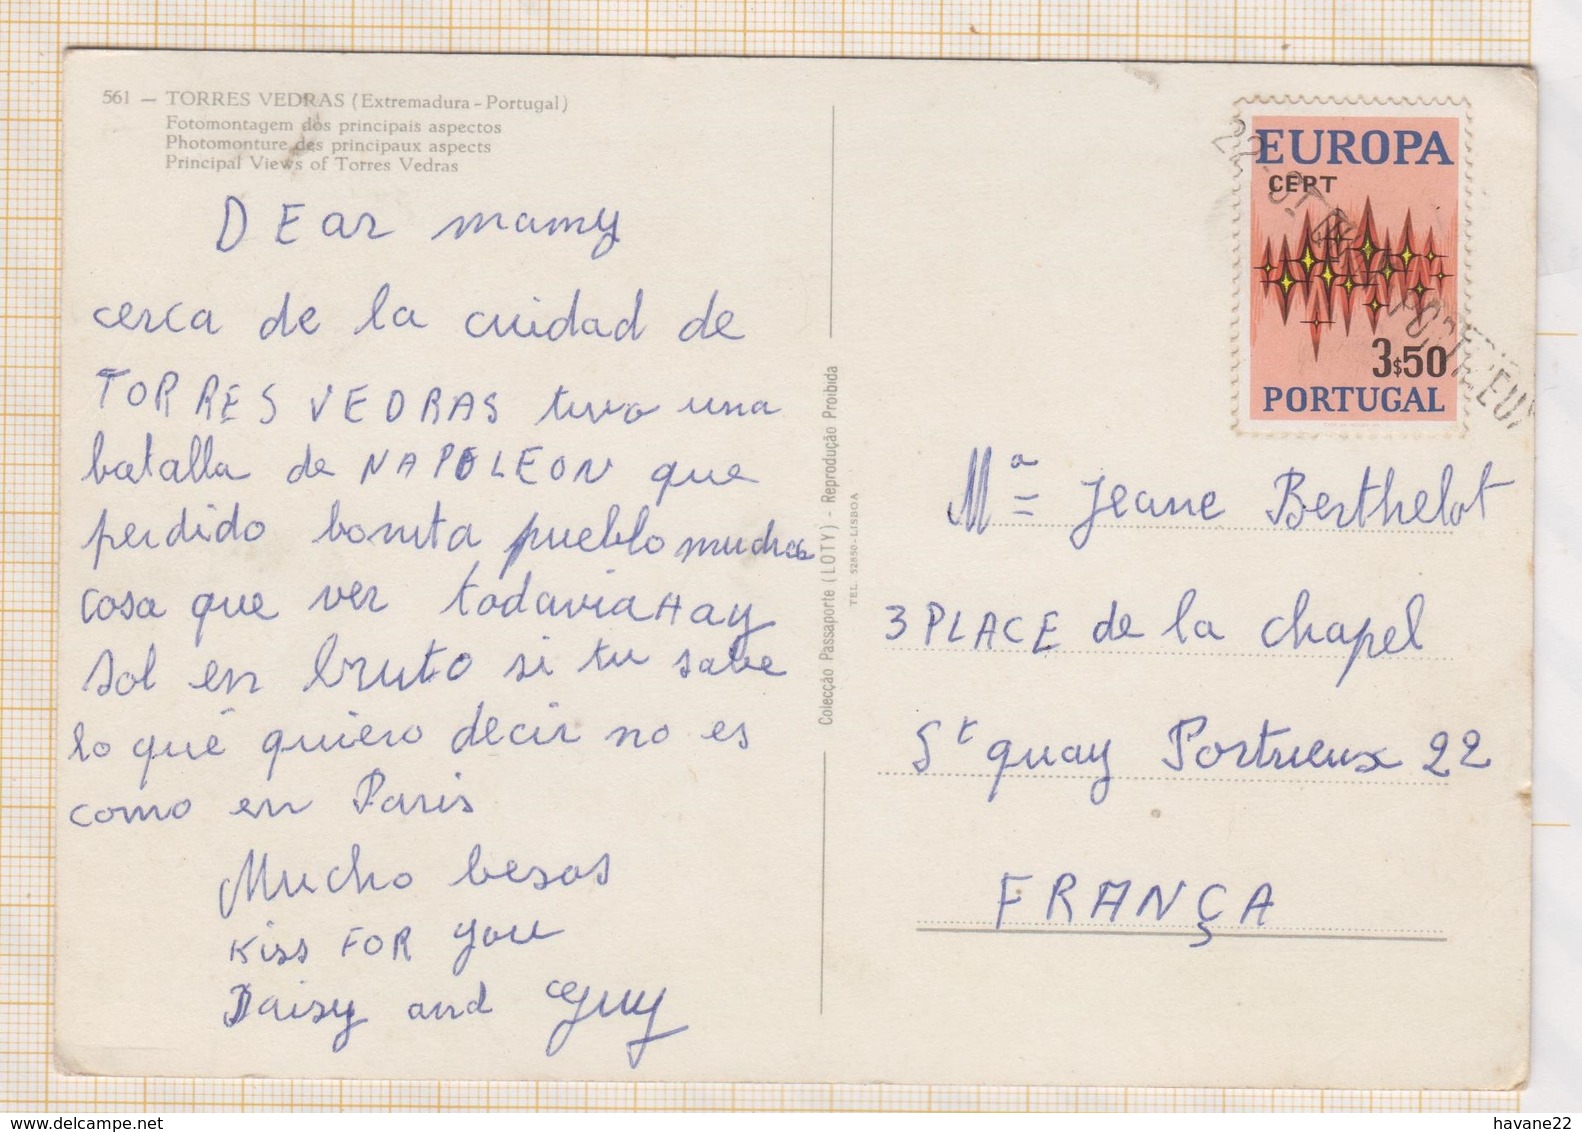 561 — TORRES VEDRAS (Extremadura - Portugal)
Fotomontagem dos principais aspectos
Photomonture des principaux aspects
Principal Views of Torres Vedras
DEar mamy
cerca de la cuidad de
TORRES VEDRAS tuvo una
batalla de NAPOLEON que
perdido bonita pueblo muchas
cosa que ver todavia HAy
sol en bruto si tu sabe
lo que quiero decir no es
como en Paris
Mucho besos
Kiss FOR you
Daisy and Guy
Colecção Passaporte (LOTY) - Reprodução Proibida
TEL. 52850-LISBOA
EUROPA
CEPT
3$50
PORTUGAL
Mª = Jeane Berthelot
3 PLACE de la chapel
St quay Portrieux 22
FRANÇA
havane22